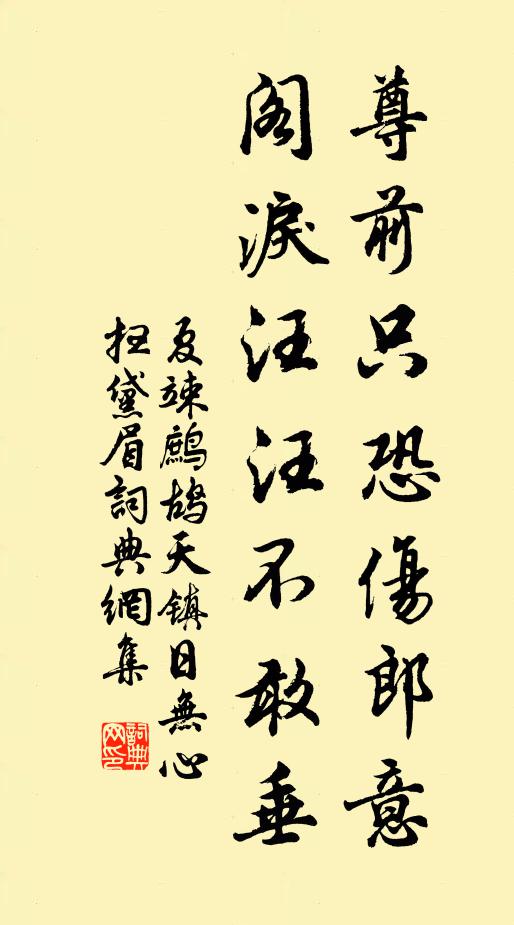 尊前只恐傷郎意
閣淚汪汪不敢垂
夏竦鷓鴣天鎮日無心
掃黛眉詞典網集
詞典
网印